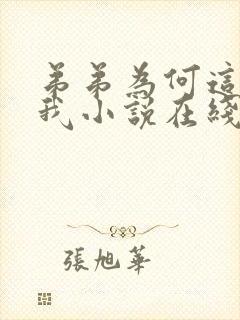 弟弟為何這
我小說在綫
張旭華